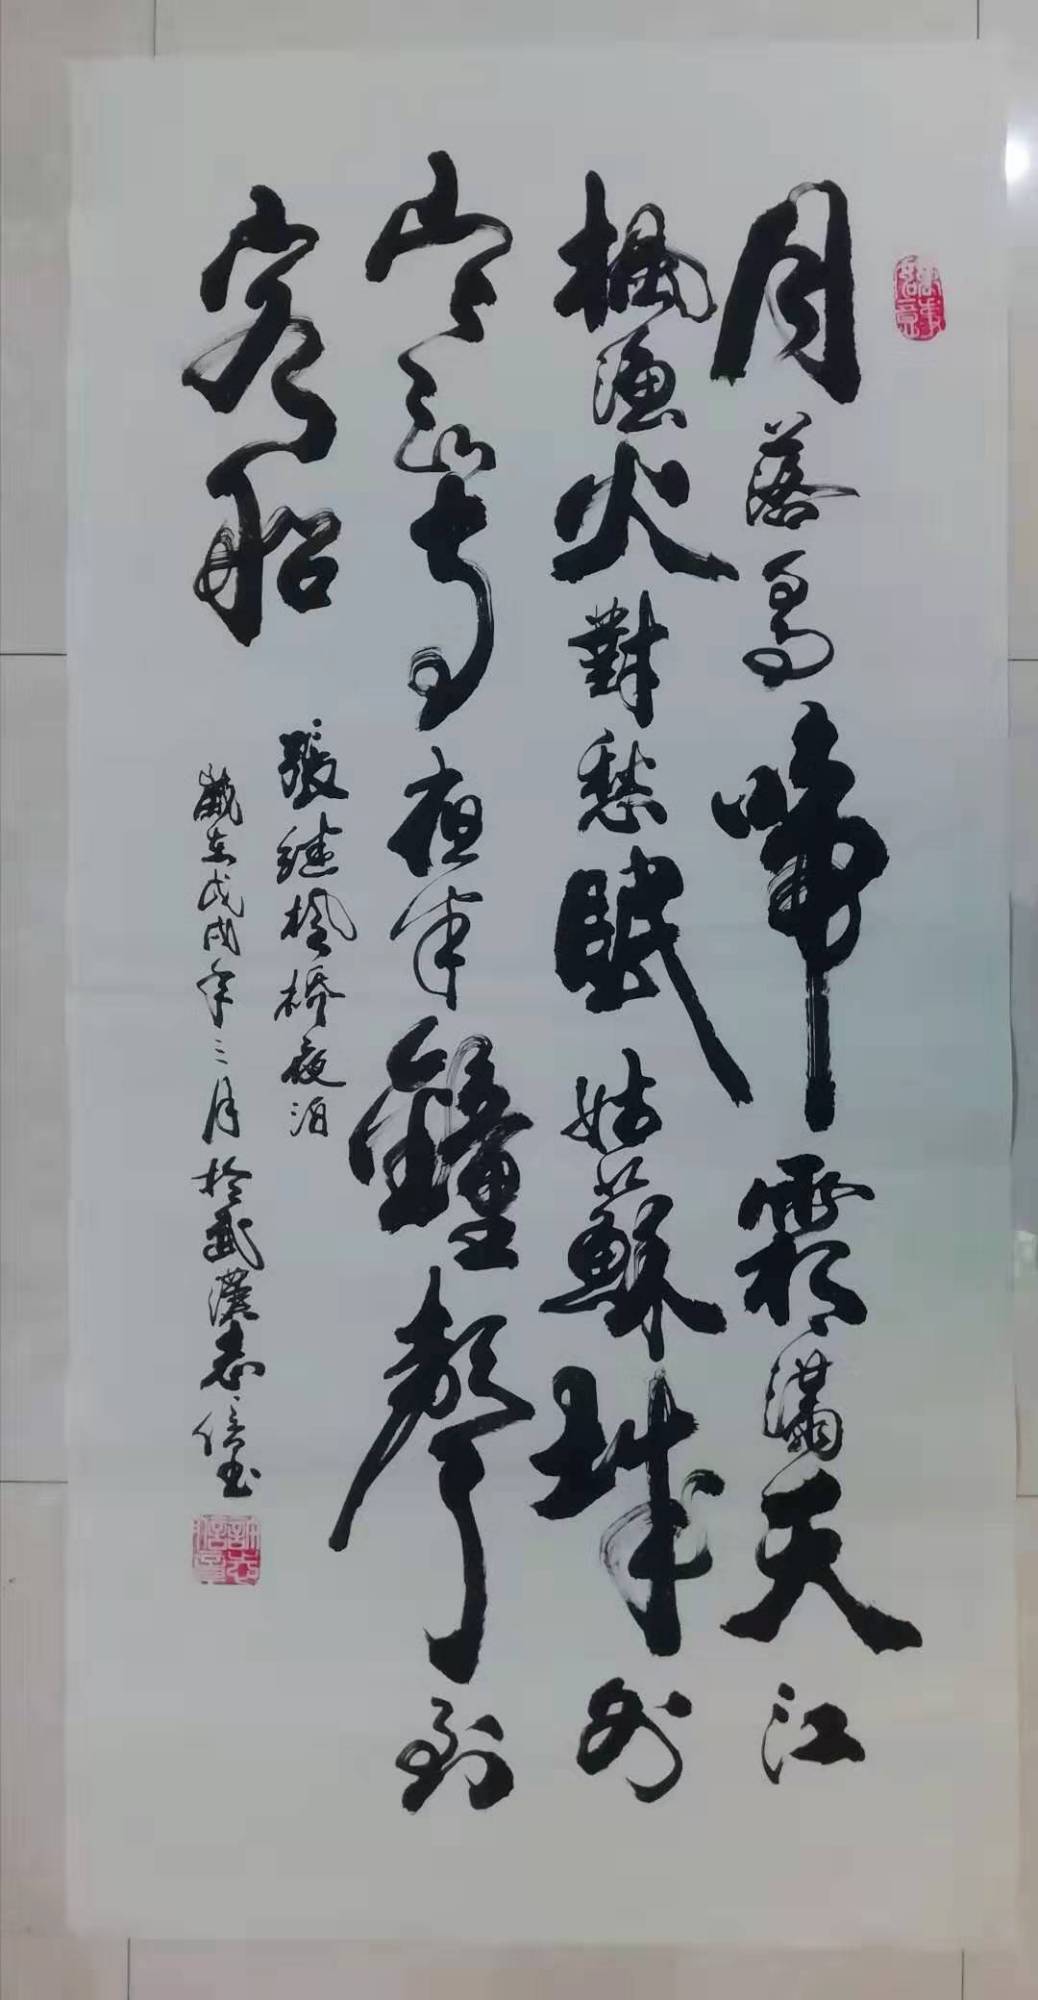 月落烏啼霜滿天江
楓漁火對愁眠姑蘇城外
寒山寺夜半鐘聲到
客船
張継楓橋夜泊
歲在戊戌年三月於武漢志信書